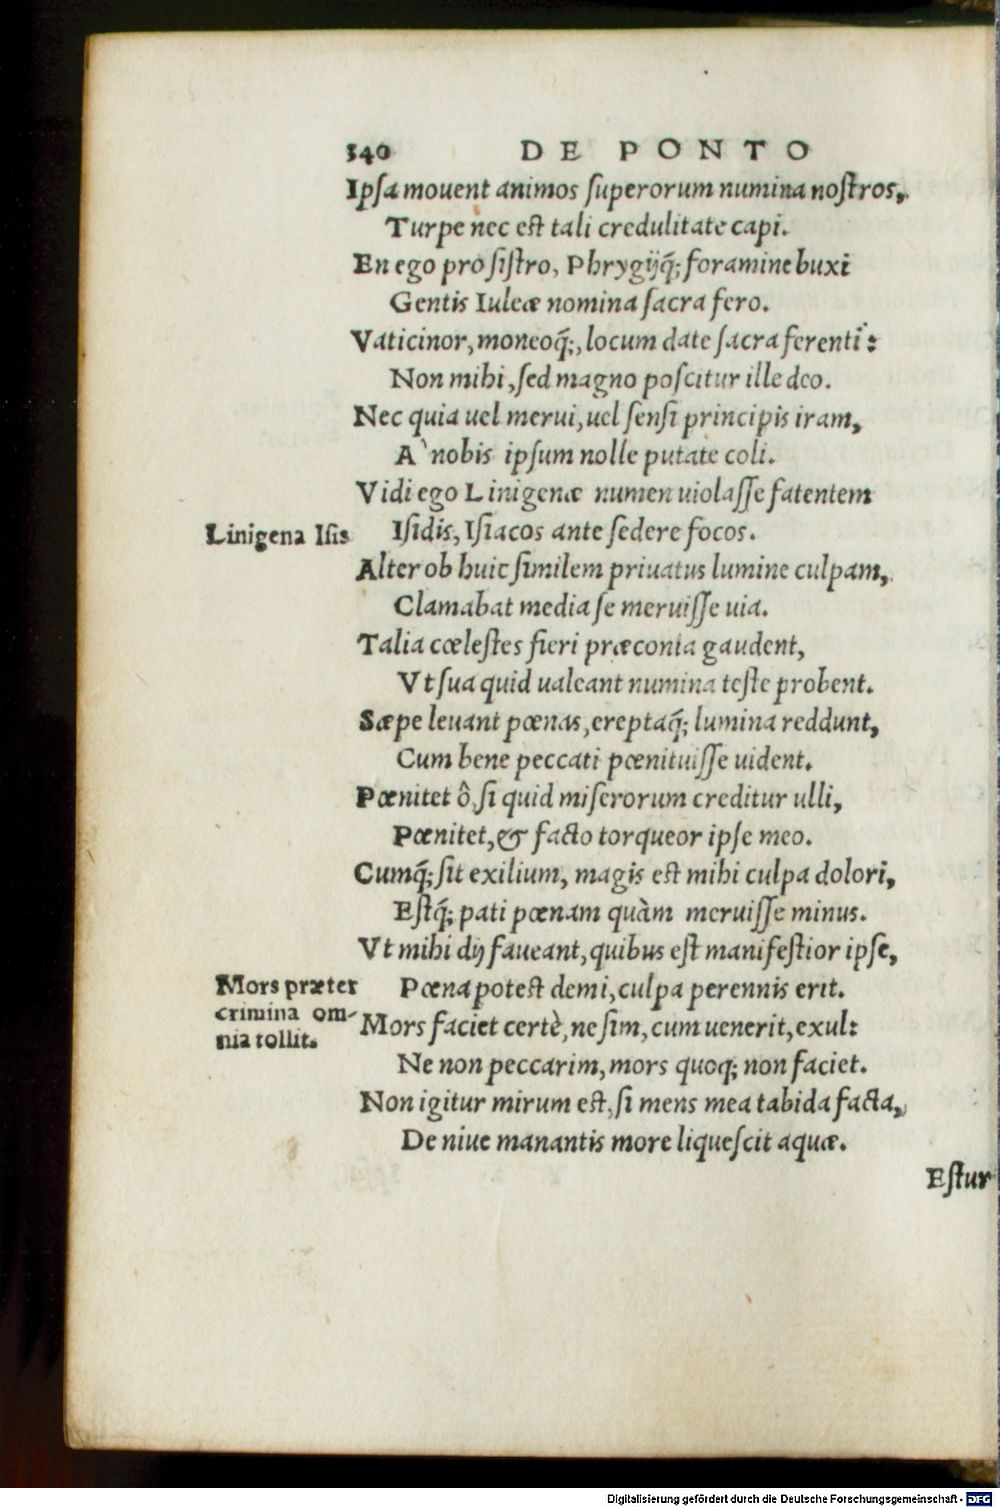 340 DE PONTO
Ipsa mouent animos superorum numina nostros,
Turpe nec est tali credulitate capi.
En ego pro sistro, Phrygijq́; foramine buxi
Gentis Iuleæ nomina sacra fero.
Vaticinor, moneoq́;, locum date sacra ferenti:
Non mihi, sed magno poscitur ille deo.
Nec quia uel merui, uel sensi principis iram,
A` nobis ipsum nolle putate coli.
Vidi ego Linigenæ numen uiolasse fatentem
Linigena Isis
Isidis, Isiacos ante sedere focos.
Alter ob huic similem priuatus lumine culpam,
Clamabat media se meruisse uia.
Talia cœlestes fieri præconia gaudent,
Vt sua quid ualeant numina teste probent.
Sæpe leuant pœnas, ereptaq́; lumina reddunt,
Cum bene peccati pœnituisse uident.
Pœnitet ô, si quid miserorum creditur ulli,
Pœnitet, & facto torqueor ipse meo.
Cumq́; sit exilium, magis est mihi culpa dolori,
Estq́; pati pœnam quàm meruisse minus.
Vt mihi dij faueant, quibus est manifestior ipse,
Mors præter
crimina om-
nia tollit.
Pœna potest demi, culpa perennis erit.
Mors faciet certè, ne sim, cum uenerit, exul:
Ne non peccarim, mors quoq; non faciet.
Non igitur mirum est, si mens mea tabida facta,
De niue manantis more liquescit aquæ.
Estur
Digitalisierung gefördert durch die Deutsche Forschungsgemeinschaft - DFG